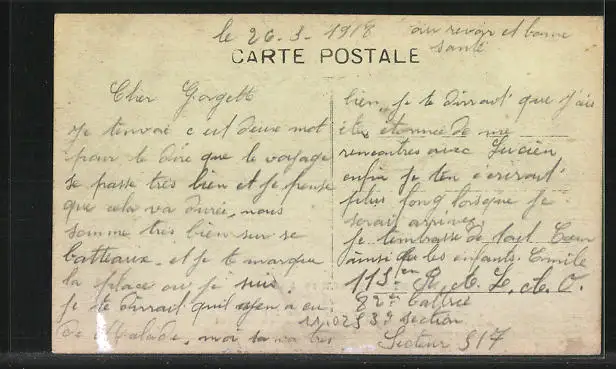 le 26-3-1918
au revoir et bonne
santé
CARTE POSTALE
Cher Gorgette
Je tenvoi c est deux mot
pour te dire que le voyage
se passe très bien et je pense
que cela va durée, nous
somme très bien sur se
batteaux. et je te marque
la place ou je suis.
je te dirrait quil y en a eu
de Malade, moi sa va très
bien, je te dirrait que j'ais
étés etonnée de me
rencontres avec Lucien
enfin je ten écrirait
plus long lorsque je
serait arrivez
Je tembrasse de tout Cœur
ainsi que les enfants. Emile
113 em R. A. L.
82 em battrie
section
Secteur 517